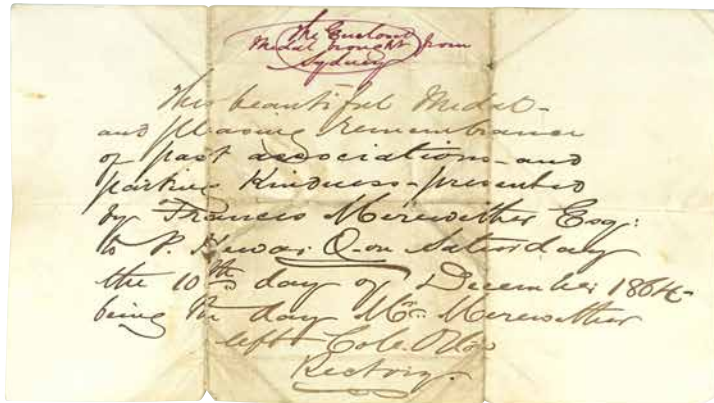 The Enclosed
Medal brought from
Sydney
This beautiful Medal-
and pleasing remembrance
of past associations-and
parting Kindness-presented
by Francis Merewether Esq:
to P. on Saturday
the 10th day of December 1864-
being the day Mr. Merewether
left Cole Orton
Rectory.